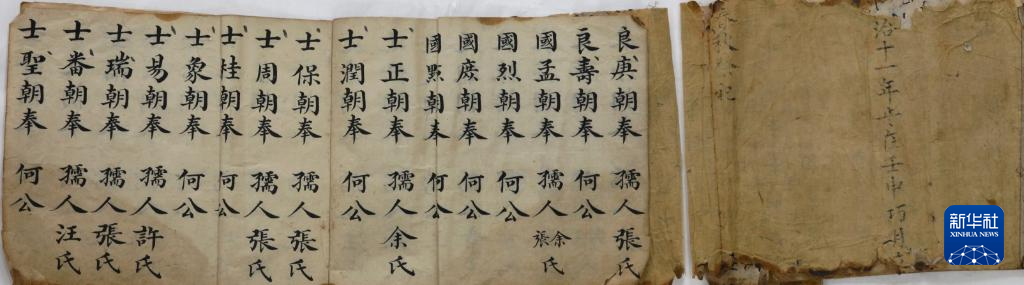 治十一年歲在壬申巧月
祀
良朝奉 孺人張氏
良壽朝奉 何公
國孟朝奉 孺人余張氏
國烈朝奉 何公
國朝奉 何公
國㸃朝奉 何公
士正朝奉 孺人余氏
士潤朝奉 何公
士保朝奉 孺人張氏
士周朝奉 孺人張氏
士桂朝奉 何公
士象朝奉 何公
士易朝奉 孺人許氏
士瑞朝奉 孺人張氏
士番朝奉 孺人汪氏
士聖朝奉 何公
新华社
XINHUA NEWS